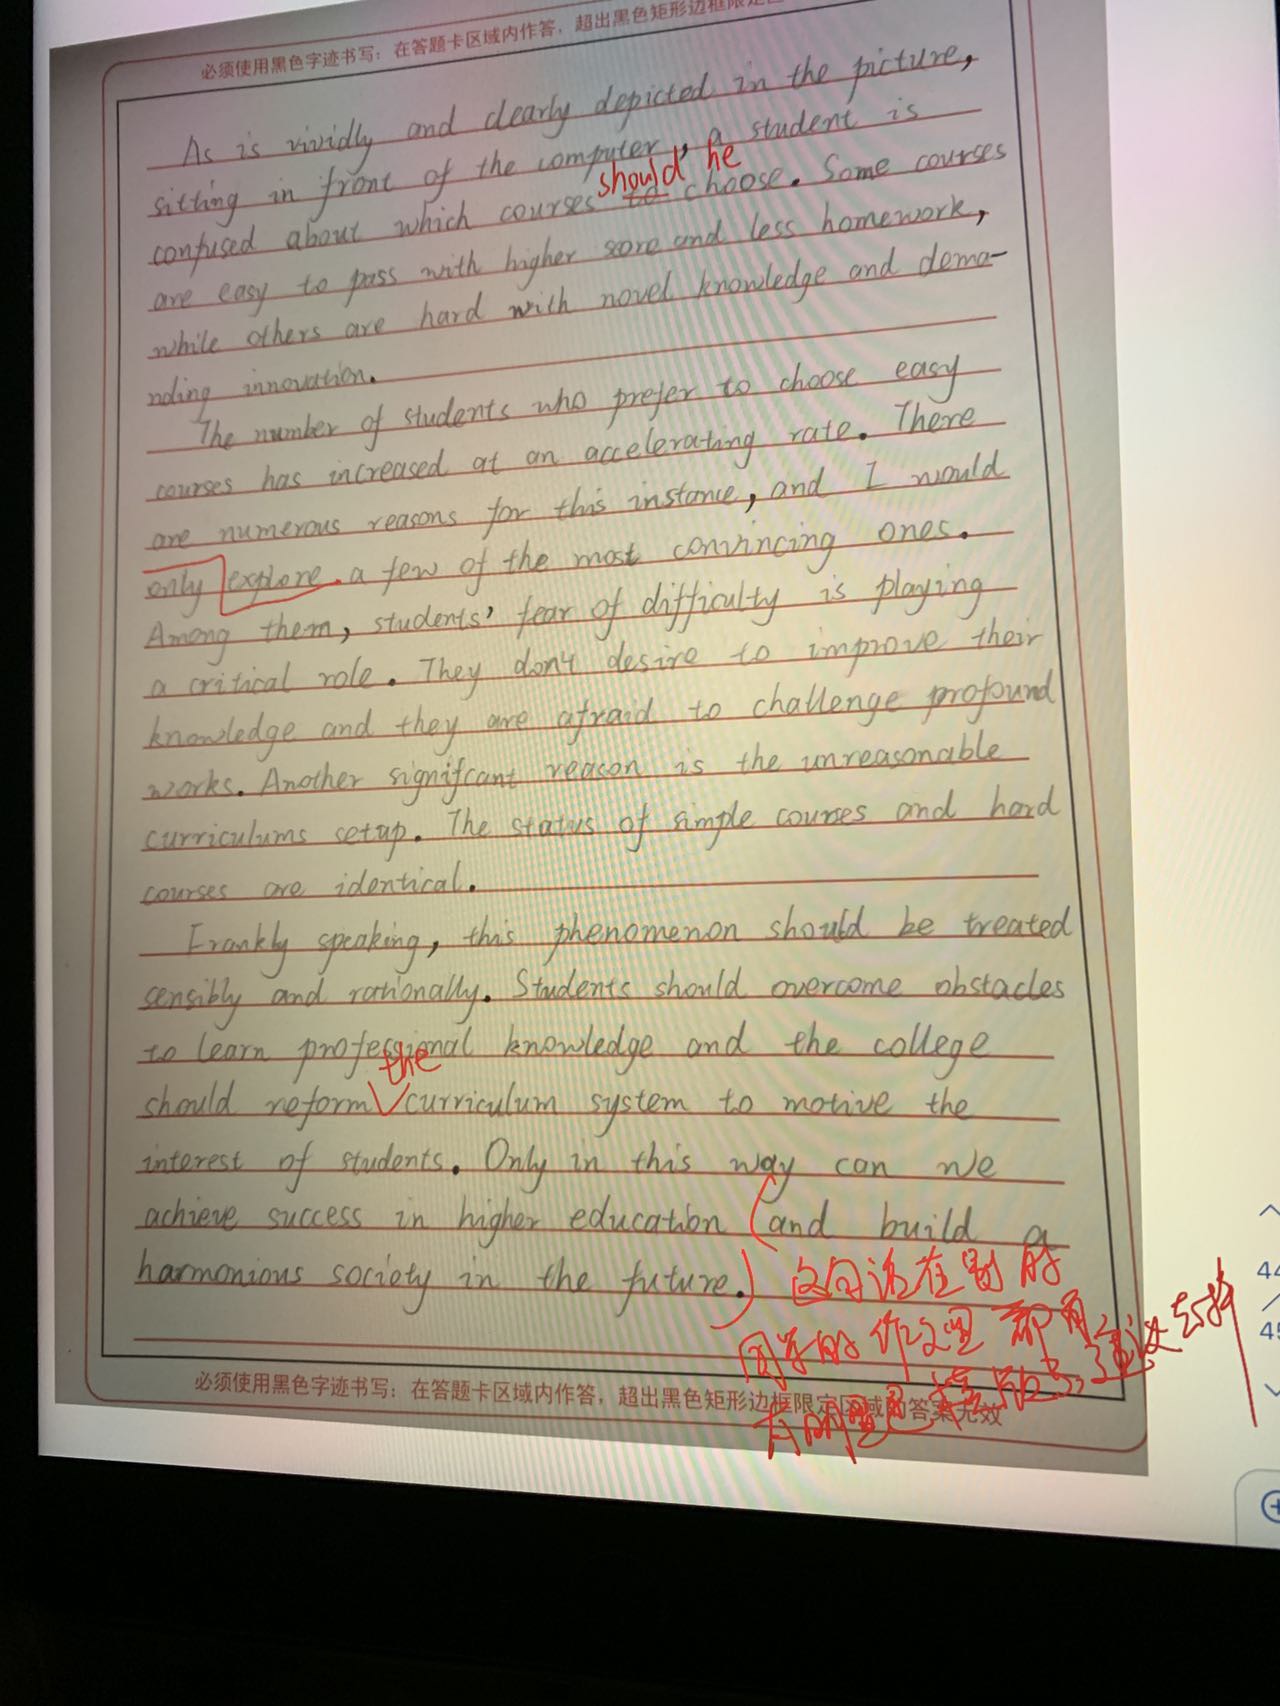 必须使用黑色字迹书写：在答题卡区域内作答，超出黑色矩形边框限定区
As is vividly and clearly depicted in the picture,
sitting in front of the computer, a student is
should he
confused about which courses to choose. Some courses
are easy to pass with higher score and less homework,
while others are hard with novel knowledge and dema-
nding innovation.
The number of students who prefer to choose easy
courses has increased at an accelerating rate. There
are numerous reasons for this instance, and I would
only explore a few of the most convincing ones.
Among them, students' fear of difficulty is playing
a critical role. They don't desire to improve their
knowledge and they are afraid to challenge profound
works. Another signifcant reason is the unreasonable
curriculums setup. The status of simple courses and hard
courses are identical.
Frankly speaking, this phenomenon should be treated
sensibly and rationally. Students should overcome obstacles
to learn professional knowledge and the college
the
should reform curriculum system to motive the
interest of students. Only in this way can we
achieve success in higher education (and build a
harmonious society in the future.) 这句话在别的
同学的作文里都有,建议去掉
有明显的模版
必须使用黑色字迹书写：在答题卡区域内作答，超出黑色矩形边框限定区域的答案无效
44
45